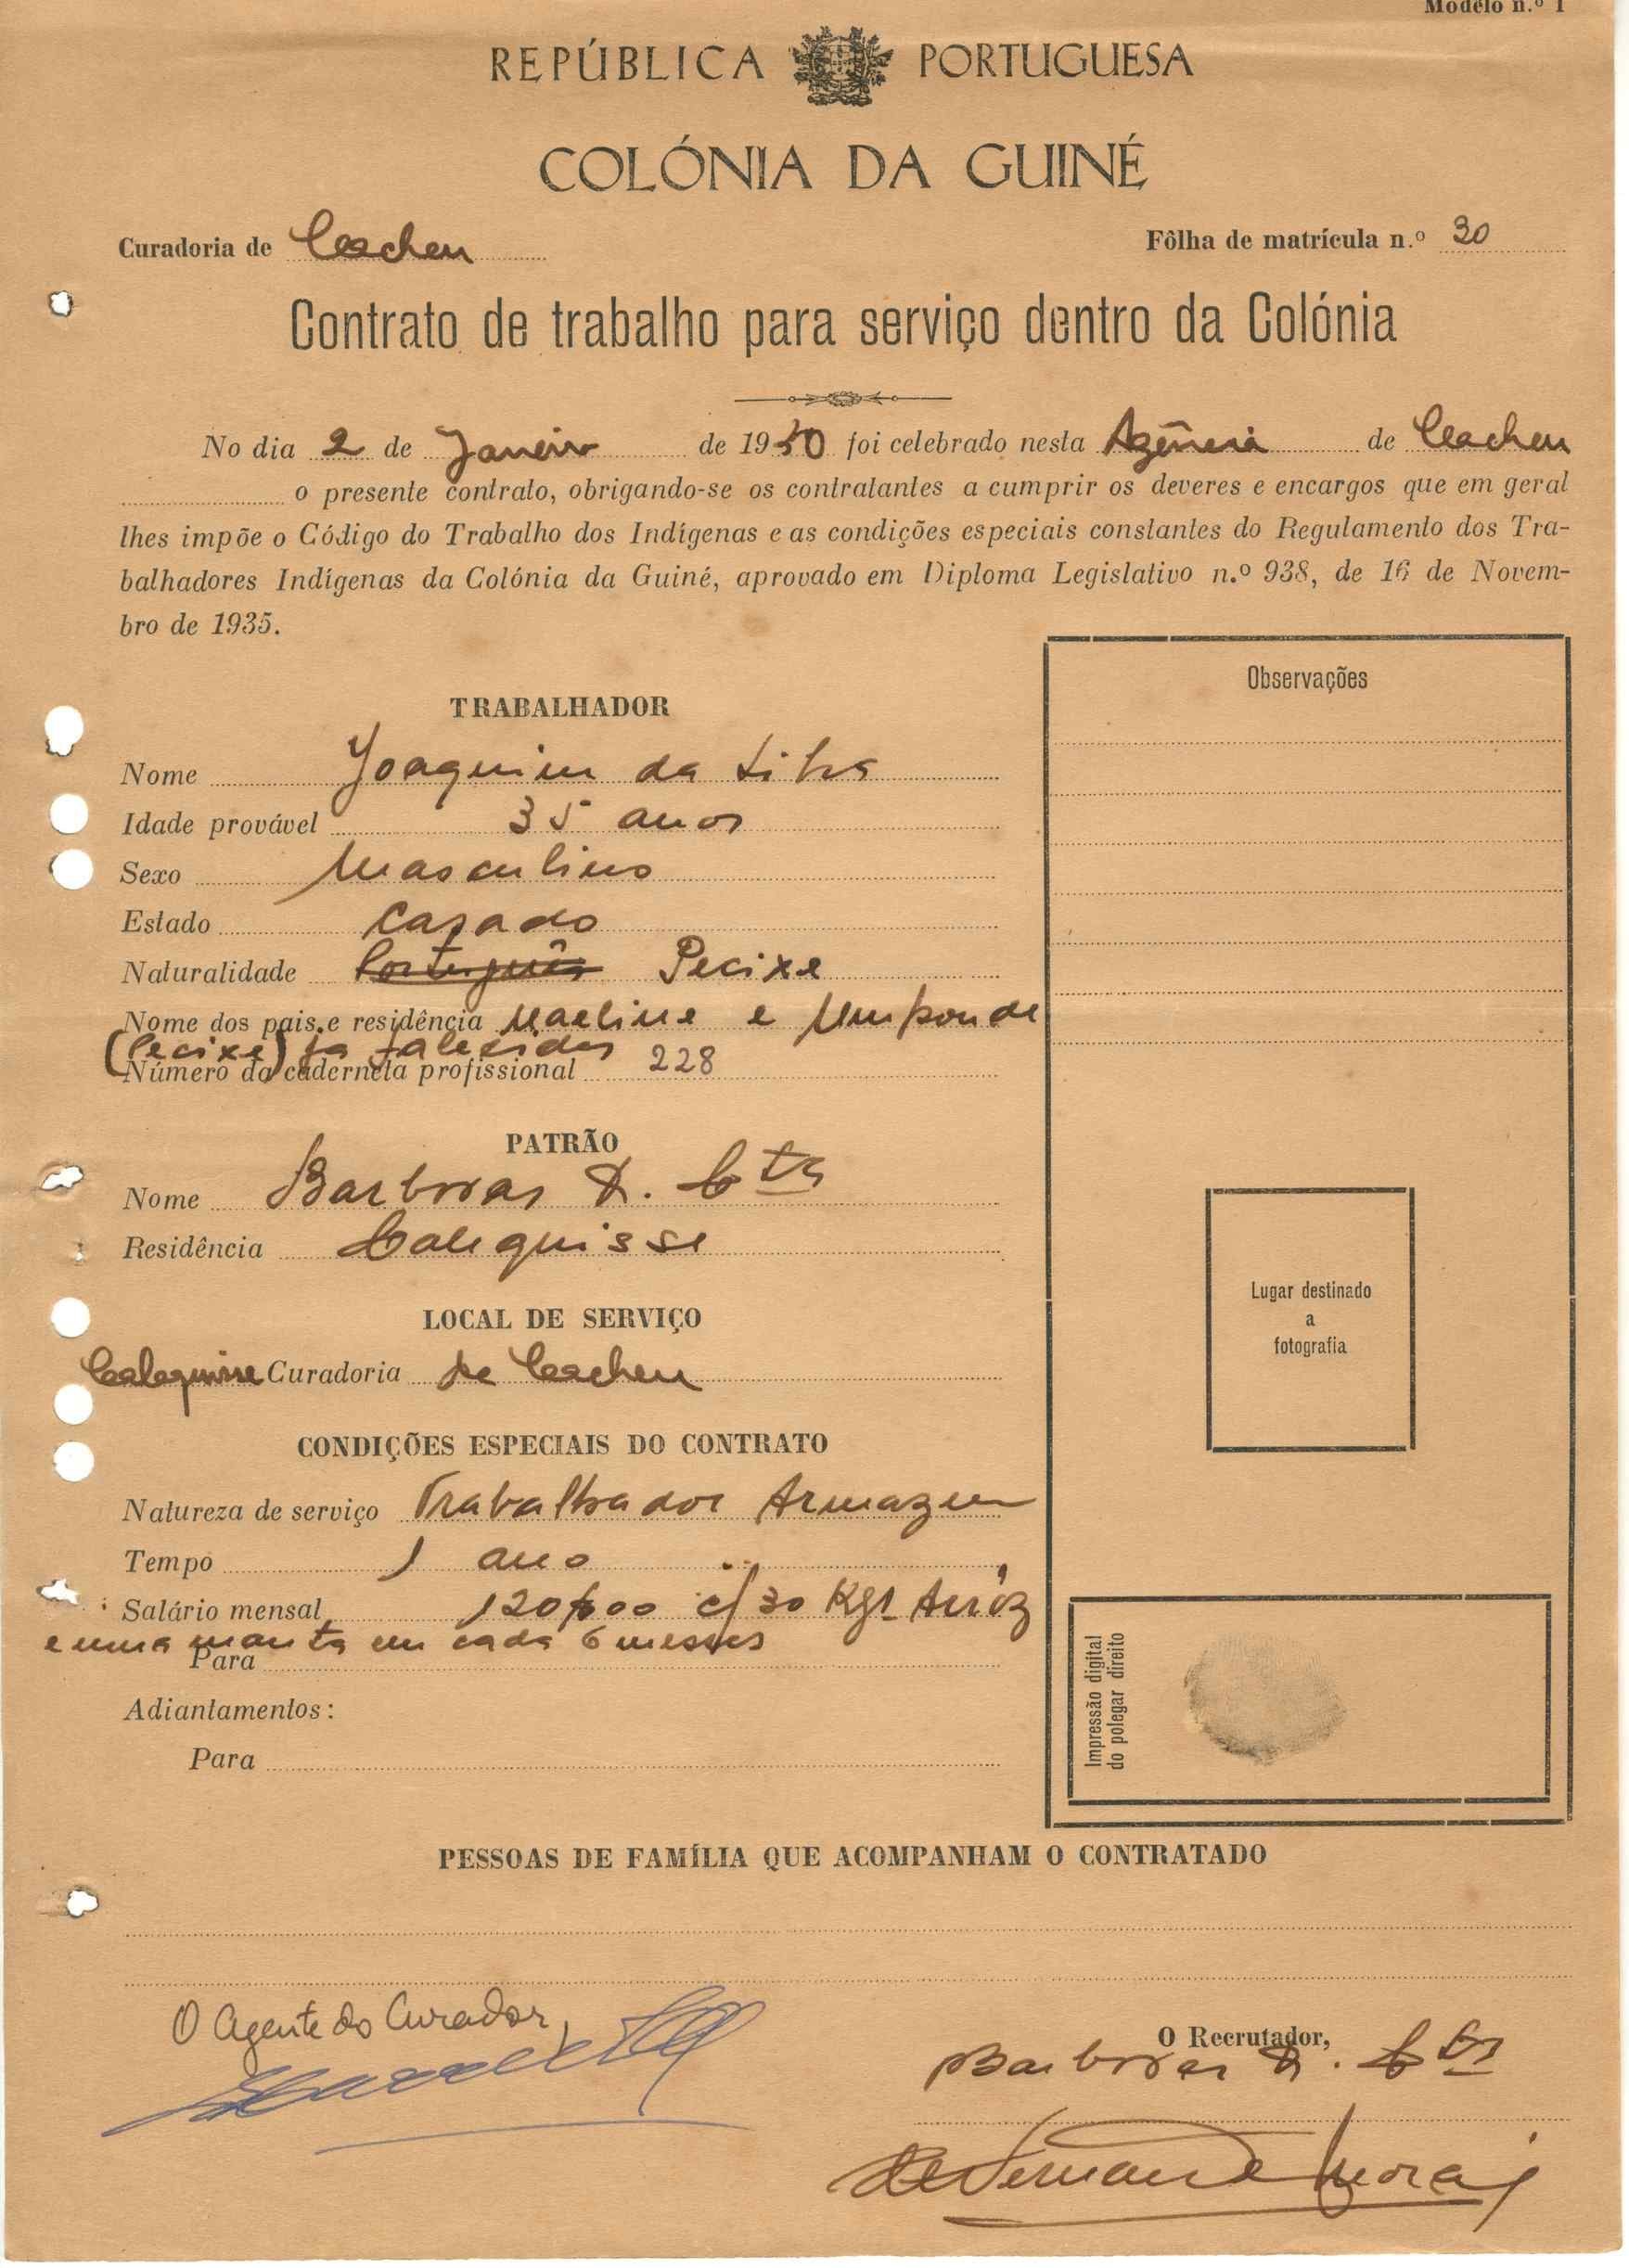 Modêlo n.º 1
REPÚBLICA PORTUGUESA
COLÓNIA DA GUINÉ
Curadoria de Cacheu Fôlha de matrícula n.º 30
Contrato de trabalho para serviço dentro da Colónia
No dia 2 de Janeiro de 1950 foi celebrado nesta Agência de Cacheu
o presente contrato, obrigando-se os contratantes a cumprir os deveres e encargos que em geral
lhes impõe o Código do Trabalho dos Indígenas e as condições especiais constantes do Regulamento dos Tra-
balhadores Indígenas da Colónia da Guiné, aprovado em Diploma Legislativo n.º 938, de 16 de Novem-
bro de 1935.
Observações
TRABALHADOR
Nome Joaquim da Silva
Idade provável 35 anos
Sexo Masculino
Estado Casado
Naturalidade Português Pecixe
Nome dos pais e residência e Umponde
(Pecixe) já falecidos
Número da caderneta profissional 228
PATRÃO
Nome Barbosas & Cta
Residência Calequisse
LOCAL DE SERVIÇO
Calequisse Curadoria de Cacheu
Lugar destinado
a
fotografia
CONDIÇÕES ESPECIAIS DO CONTRATO
Natureza de serviço Trabalhador Armazem
Tempo 1 ano
Salário mensal 120$00 c/ 30 Kgs Arróz
e uma manta em cada 6 messes
Para
Adiantamentos:
Para
Impressão digital
do polegar direito
PESSOAS DE FAMÍLIA QUE ACOMPANHAM O CONTRATADO
O Agente do Curador,
O Recrutador,
Barbosas & Cta
Morais